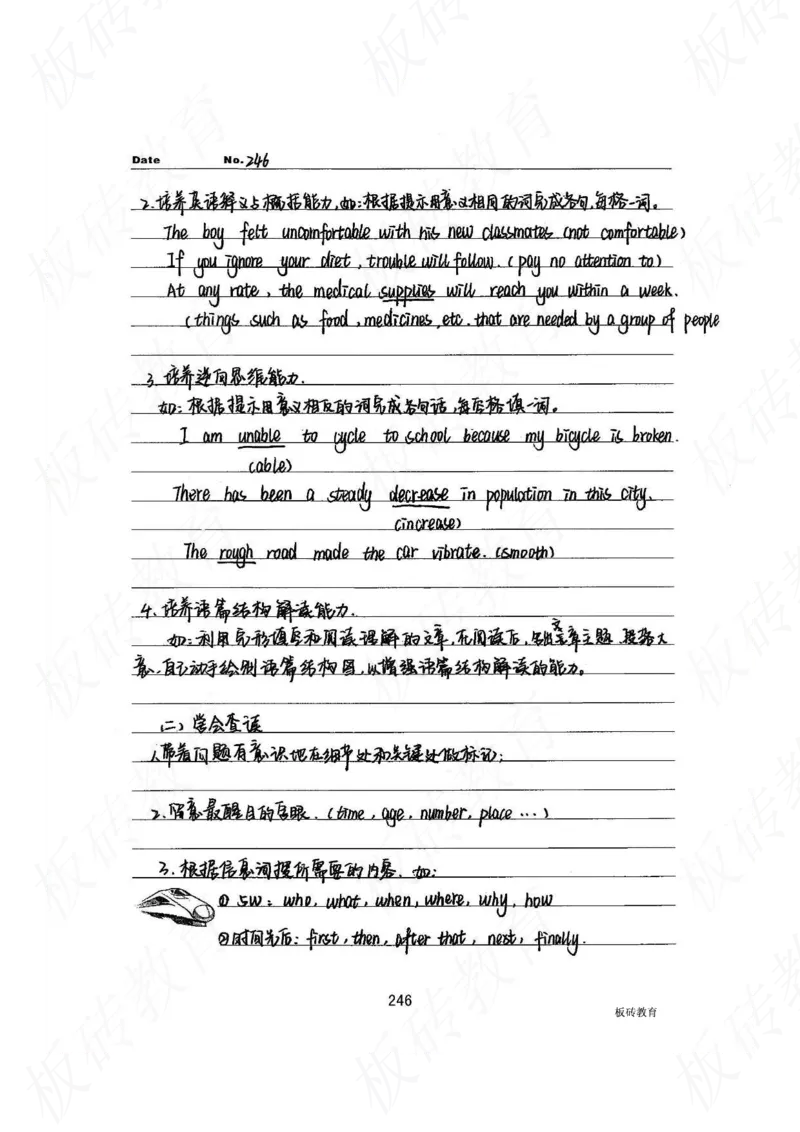 Date No. 246
2. 培养英语释义与概括能力,如:根据提示用意义相同的词完成各句,每格一词。
The boy felt uncomfortable with his new classmates. (not comfortable)
If you ignore your diet, trouble will follow. (pay no attention to)
At any rate, the medical supplies will reach you within a week.
(things such as food, medicines, etc. that are needed by a group of people
3. 培养逆向思维能力.
如:根据提示用意义相反的词完成各句话,每空格填一词。
I am unable to cycle to school because my bicycle is broken.
(able)
There has been a steady decrease in population in this city.
(increase)
The rough road made the car vibrate. (smooth)
4. 培养语篇结构解读能力.
如:利用完形填空和阅读理解的文章,在阅读后,写出文章主题 段落大
意.自己动手绘制语篇结构图,以增强语篇结构解读的能力。
(二)学会查读
1.带着问题有意识地在细节处和关键处做标记;
2.留意最醒目的字眼.(time, age, number, place ...)
3.根据信息词提所需要的内容.如:
① 5W: who, what, when, where, why, how
②时间先后: first, then, after that, next, finally.
246
板砖教育